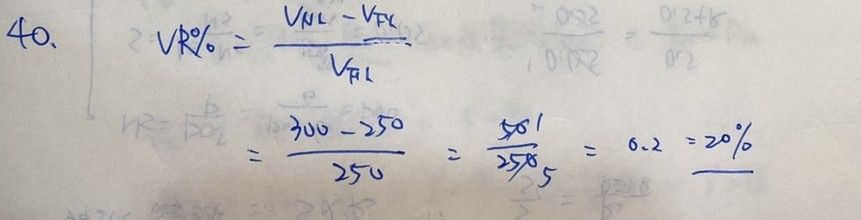 40. VR% = (V_NL - V_FL) / V_FL
= (300 - 250) / 250 = 50 1 / 250 5 = 0.2 = 20%